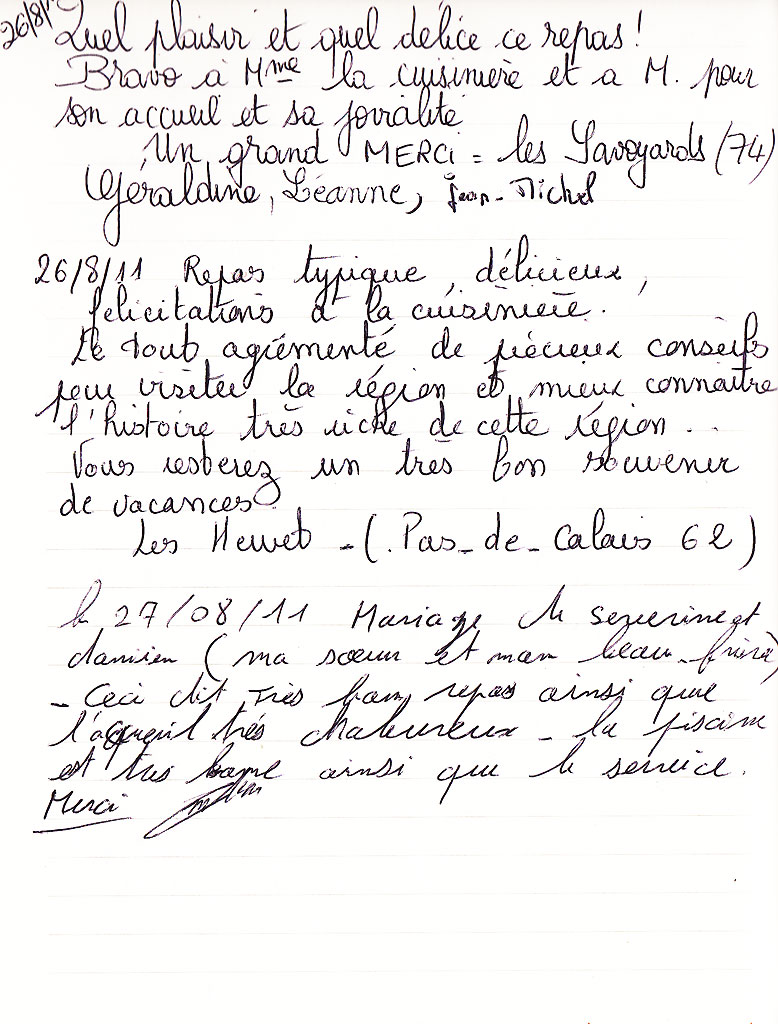 26/8/11
Quel plaisir et quel délice ce repas !
Bravo à Mme la cuisinière et à M. pour
son accueil et sa jovialité
Un grand MERCI = les Savoyards (74)
Géraldine, Léanne, Jean-Michel
26/8/11 Repas typique, délicieux,
félicitations à la cuisinière.
Le tout agrémenté de précieux conseils
pour visiter la région et mieux connaître
l'histoire très riche de cette région...
Vous resterez un très bon souvenir
de vacances.
Les - (Pas-de-Calais 62)
le 27/08/11 Mariage de severine et
damien (ma sœur et mon beau-frère)
- Ceci dit Très bon repas ainsi que
l'acceuil très chaleureux - la piscine
est très bonne ainsi que le service.
Merci